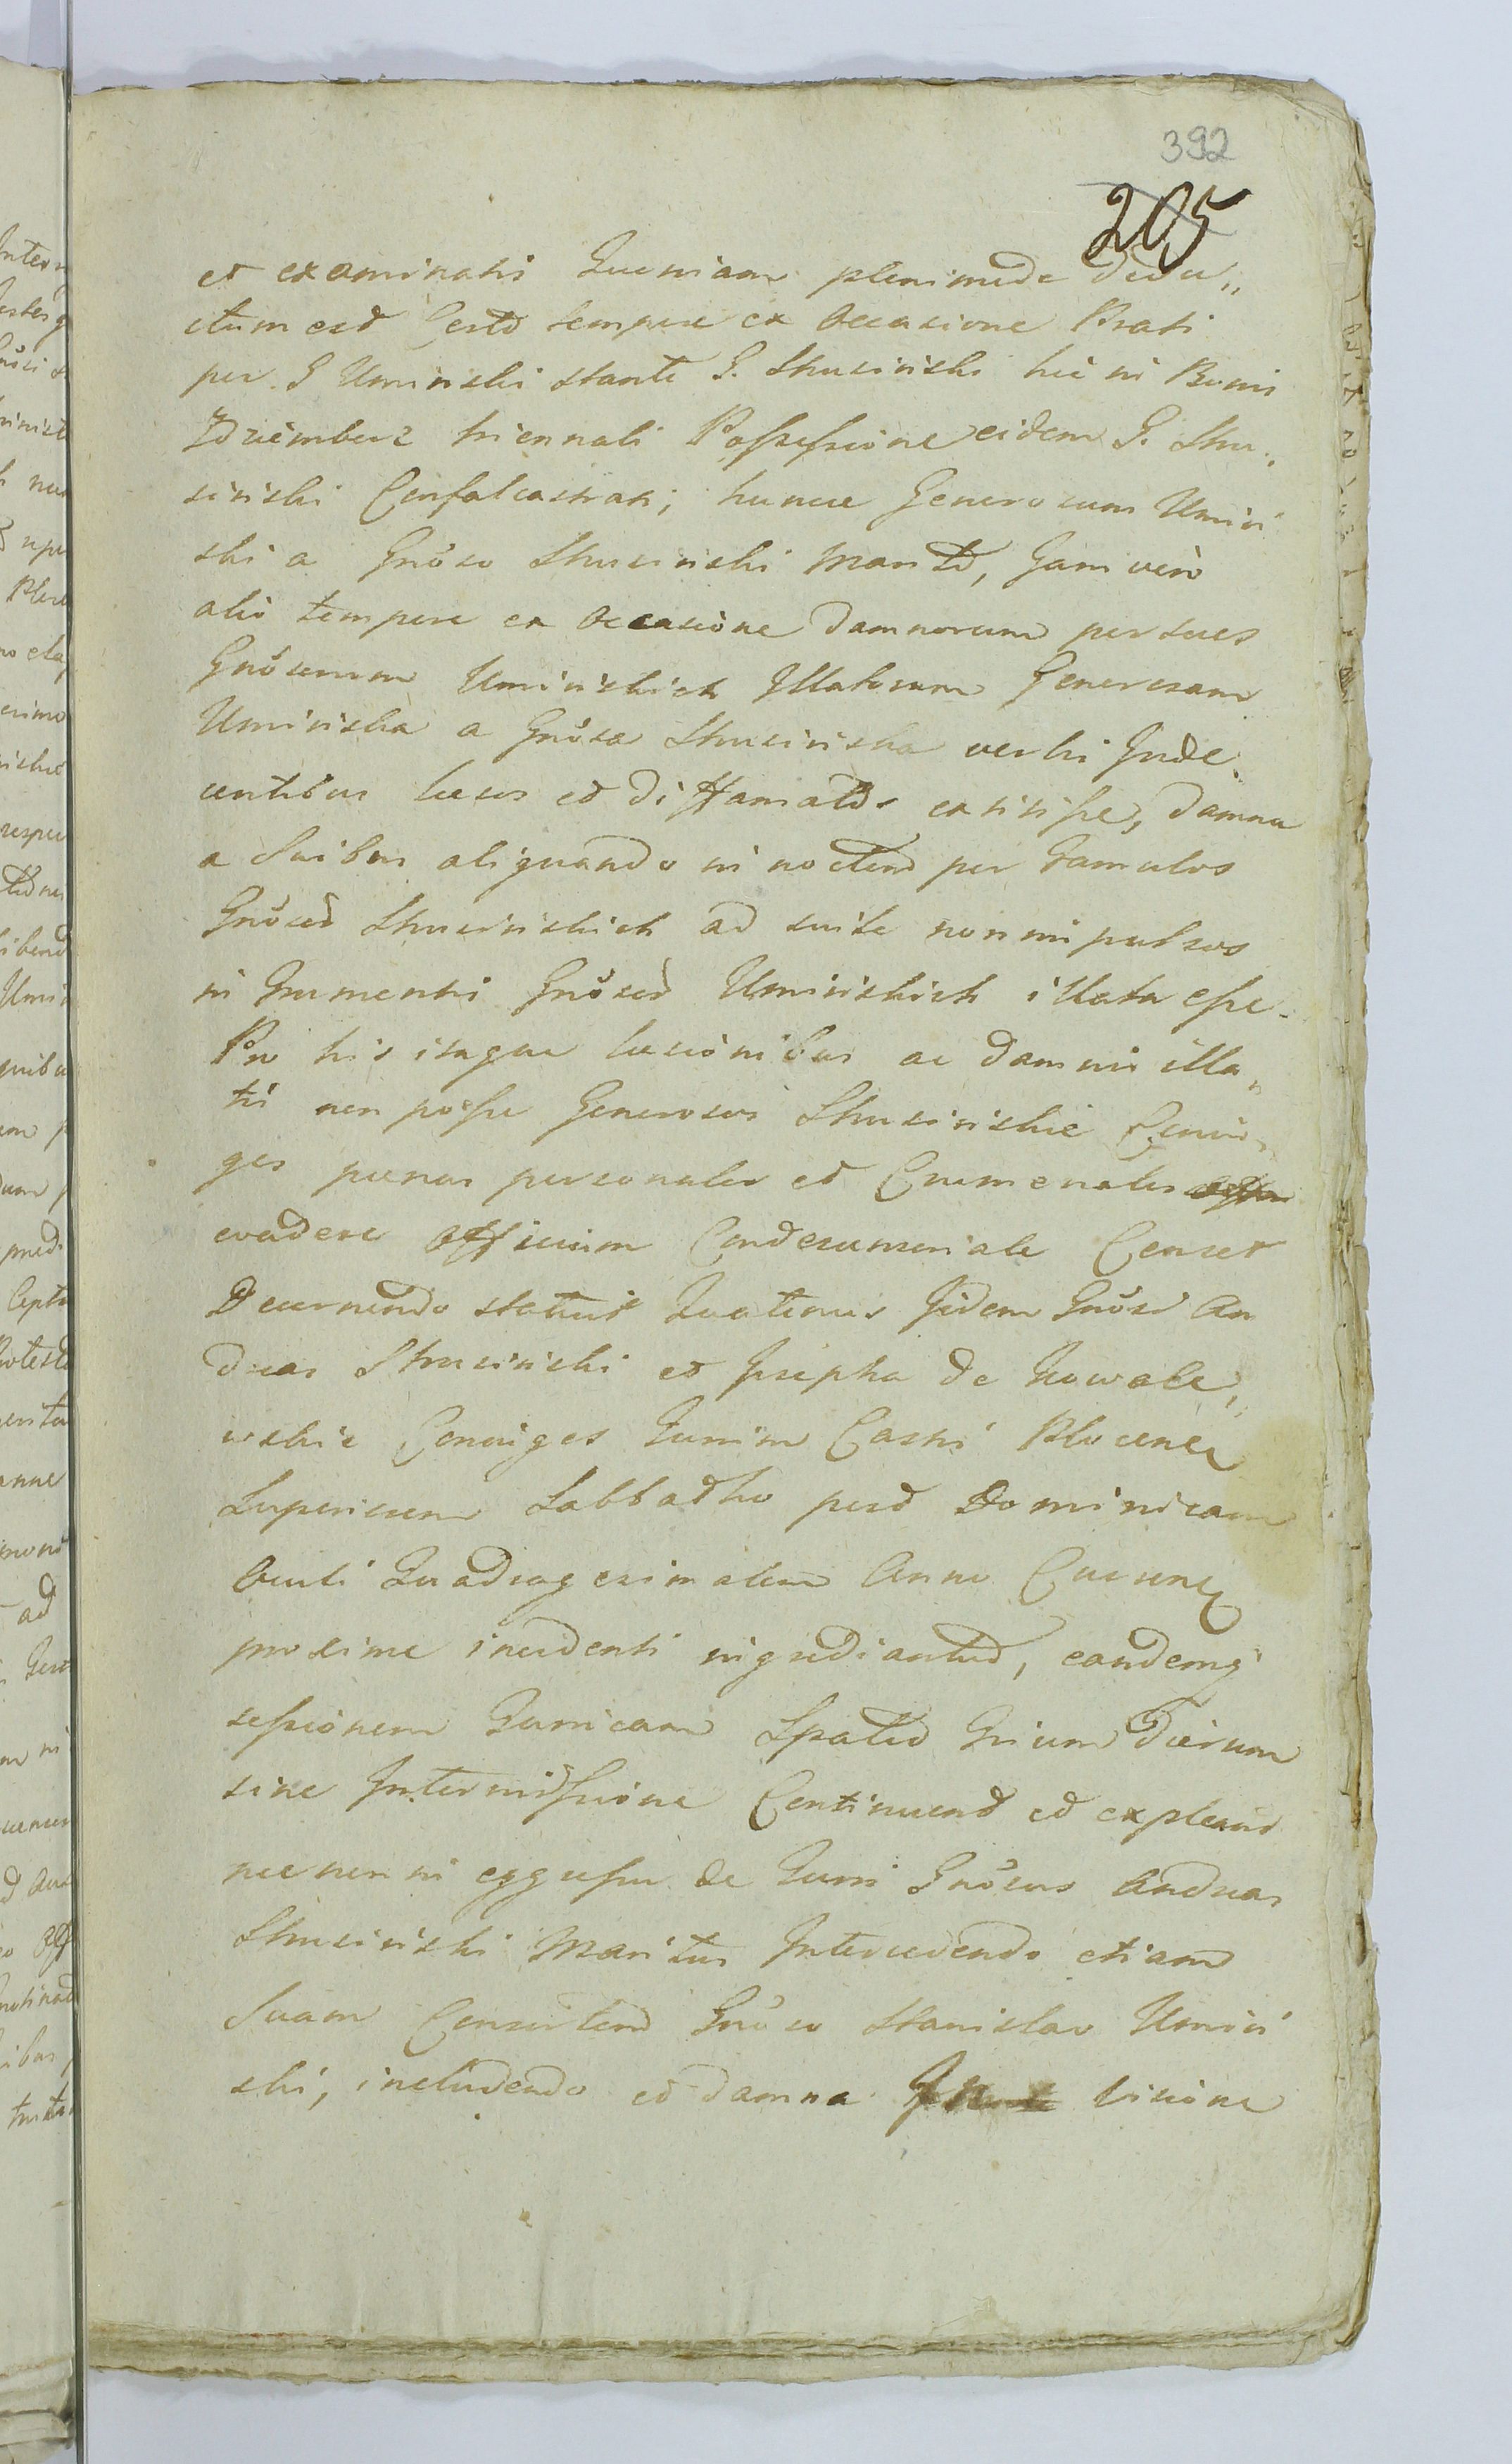 392
205
et examinatis Quoniam plenimode dedu„
ctum est Certo tempore ex Occasione Prati
per G Uminski stante G. Skusinski hic in Bonis
Zdziembórz triennali Possessione eidem G. Sku„
sinski Confalcastrati, huncce Generosum Umin
ski a Gnoso Skusinski Marito, Jam vero
alio tempore ex Occasione damnorum per sues
Gnosorum Uminskich Illatorum Generosam
Uminska a Gnosa Skusinska verbis Inde„
centibus laesos et diffamatos extitisse, damna
a Suibus aliquando in noctem per famulos
Gnosor Skusinskich ad suile non impulsos
in frumentis Gnosor Uminskich illata esse.
Pro his itaque laesionibus ac damnis illa„
tis non posse Generosos Skusinskie Conju„
ges poenas personales et Crimenales
evadere Officium Condescensoriale Censet
Decernendo statuit Quatenus Iidem Gnosi An
dreas Skusinski et Josepha de Kowale„
wskie Conjuges Turrim Castri Plocen
Superiorem Sabbatho post Dominicam
Oculi Quadragesimalem Anno Curren
proxime incidenti ingrediantur, eandemq
sessionem Turricam Spatio trium dierum
sine Intermissione Continuent et expleant
nec non in egressu de Turri Gnosus Andreas
Skusinski Maritus Intercedendo etiam
Suam Consortem Gnoso Stanislao Umin
ski, includendo et damna visione